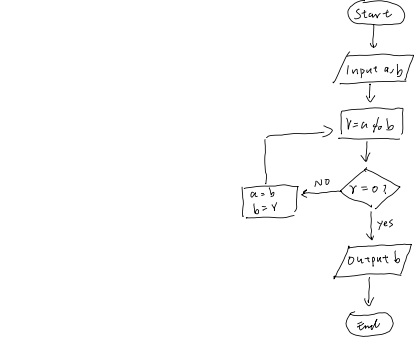 Start
Input a,b
r=a%b
r=0?
NO
a=b
b=r
yes
Output b
End